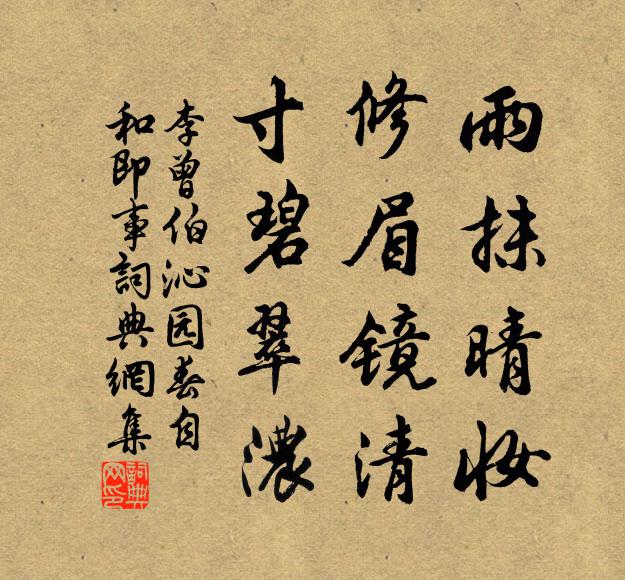 雨抹晴妆
修眉镜清
寸碧翠浓
李曾伯沁园春自
和即事詞典網集
詞典网印